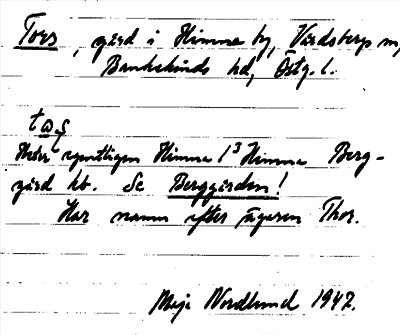 Tors, gård i Himna by, Vårdsbergs sn,
Bankekinds hd, Östg. l.
tås
Heter egentligen Himna 1³ Himna Berg-
gård kb. Se Berggården!
Har namn efter ägaren Thor.
Maja Nordlund 1947.